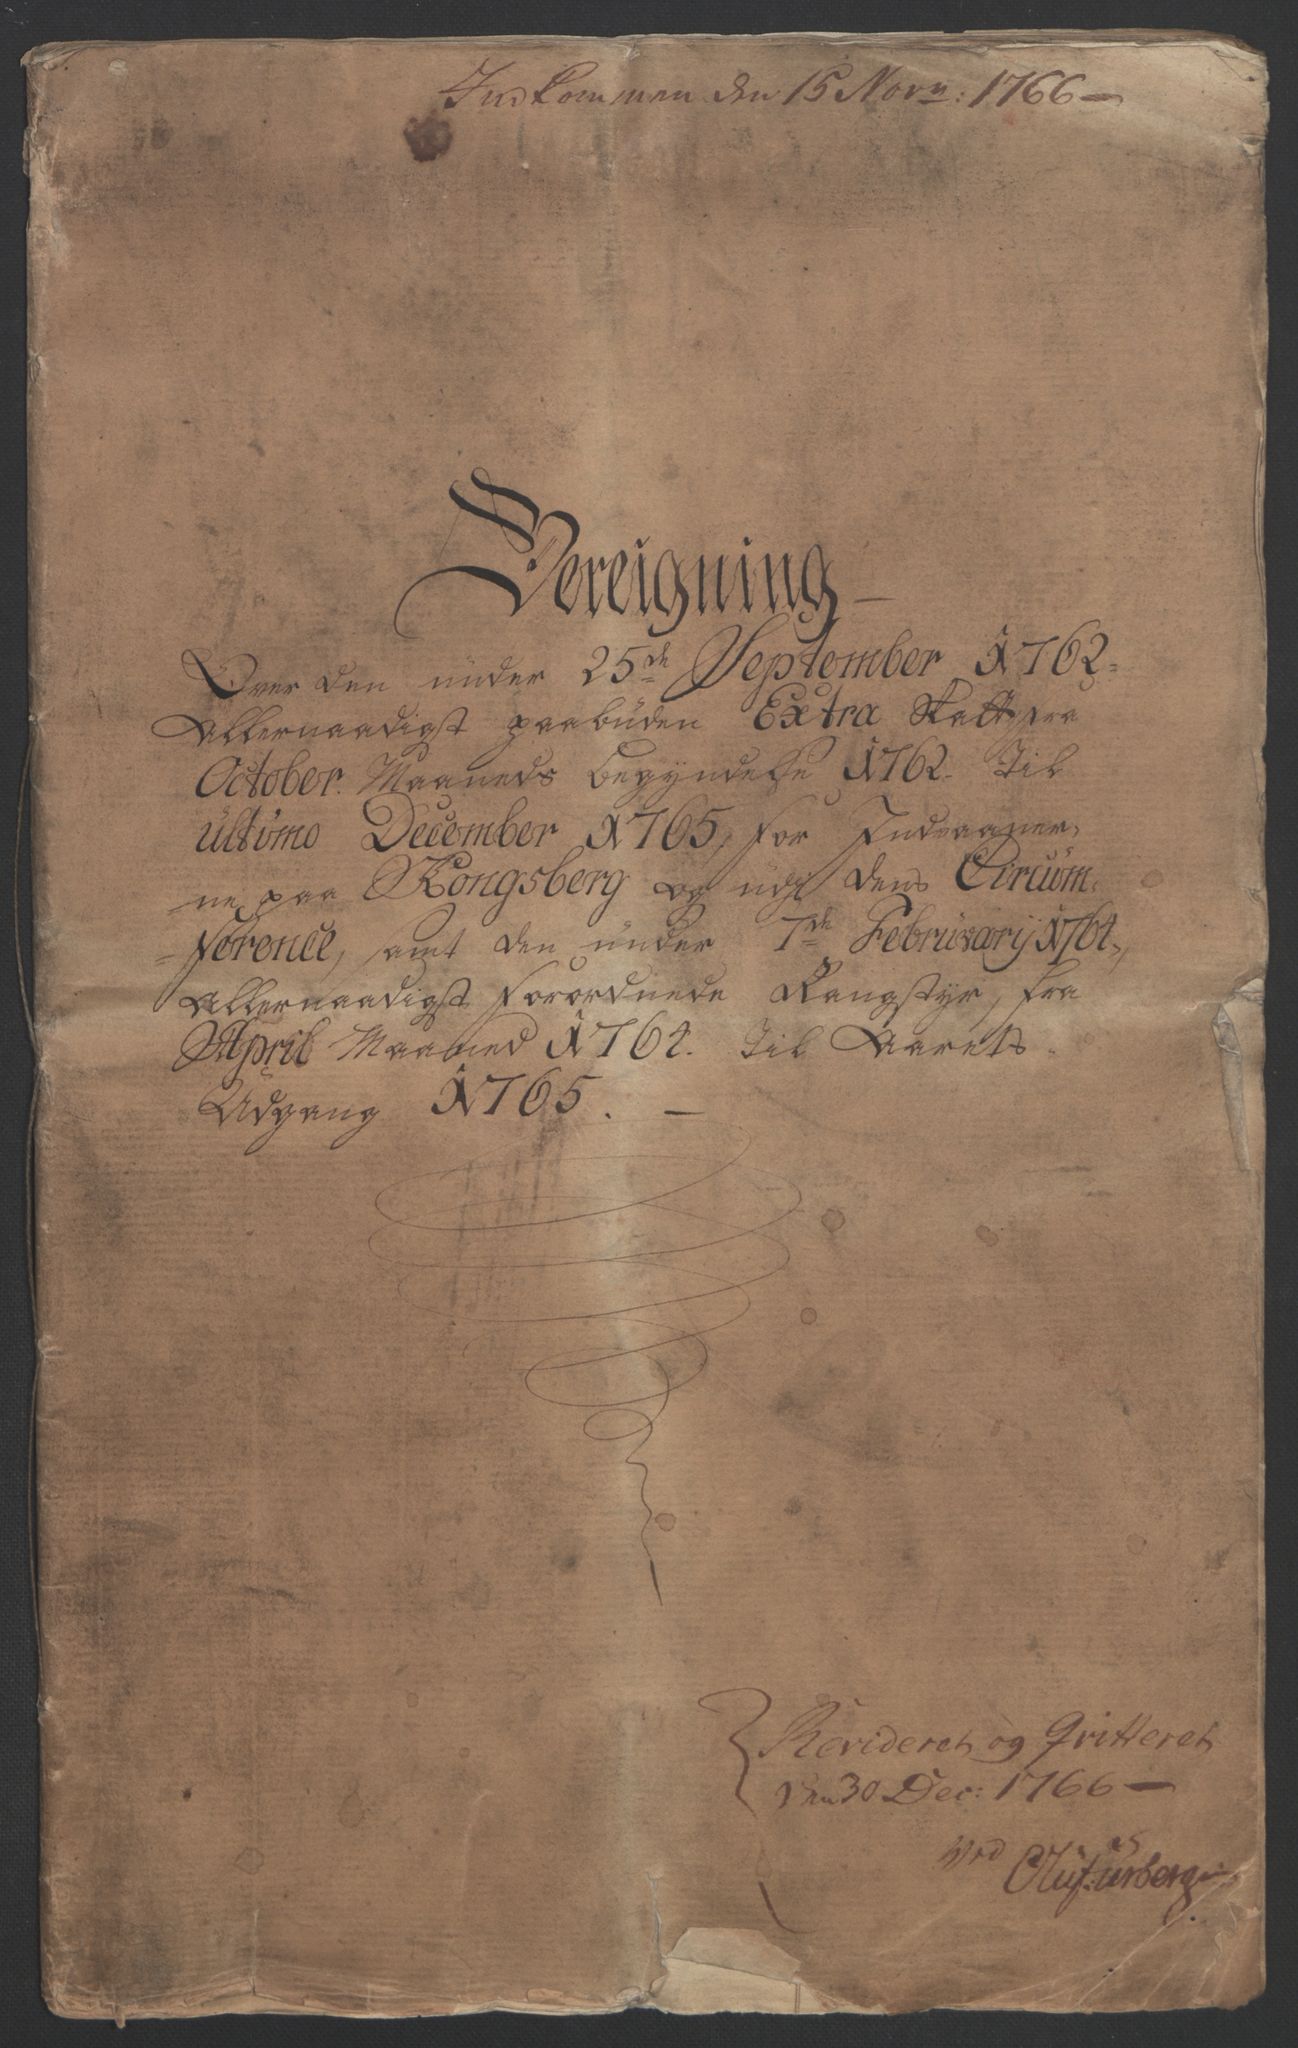 Indkommen den 15 Novr: 1766 —
Bereigning —
Over den under 25de September 1762.
Allernaadigst paabuden Extra Skatt, fra
October Maaneds begyndelse 1762. til
ultimo December 1765, for Indvaaner,
ne paa Kongsberg og udj dens Circum,
ference, samt den under 7de Februarij 1764.,
Allernaadigst forordnede Rangstyr, fra
April Maaned 1764. til Aarets
Udgang 1765. —
Revideret og Qvitteret
den 30 Dec: 1766 —